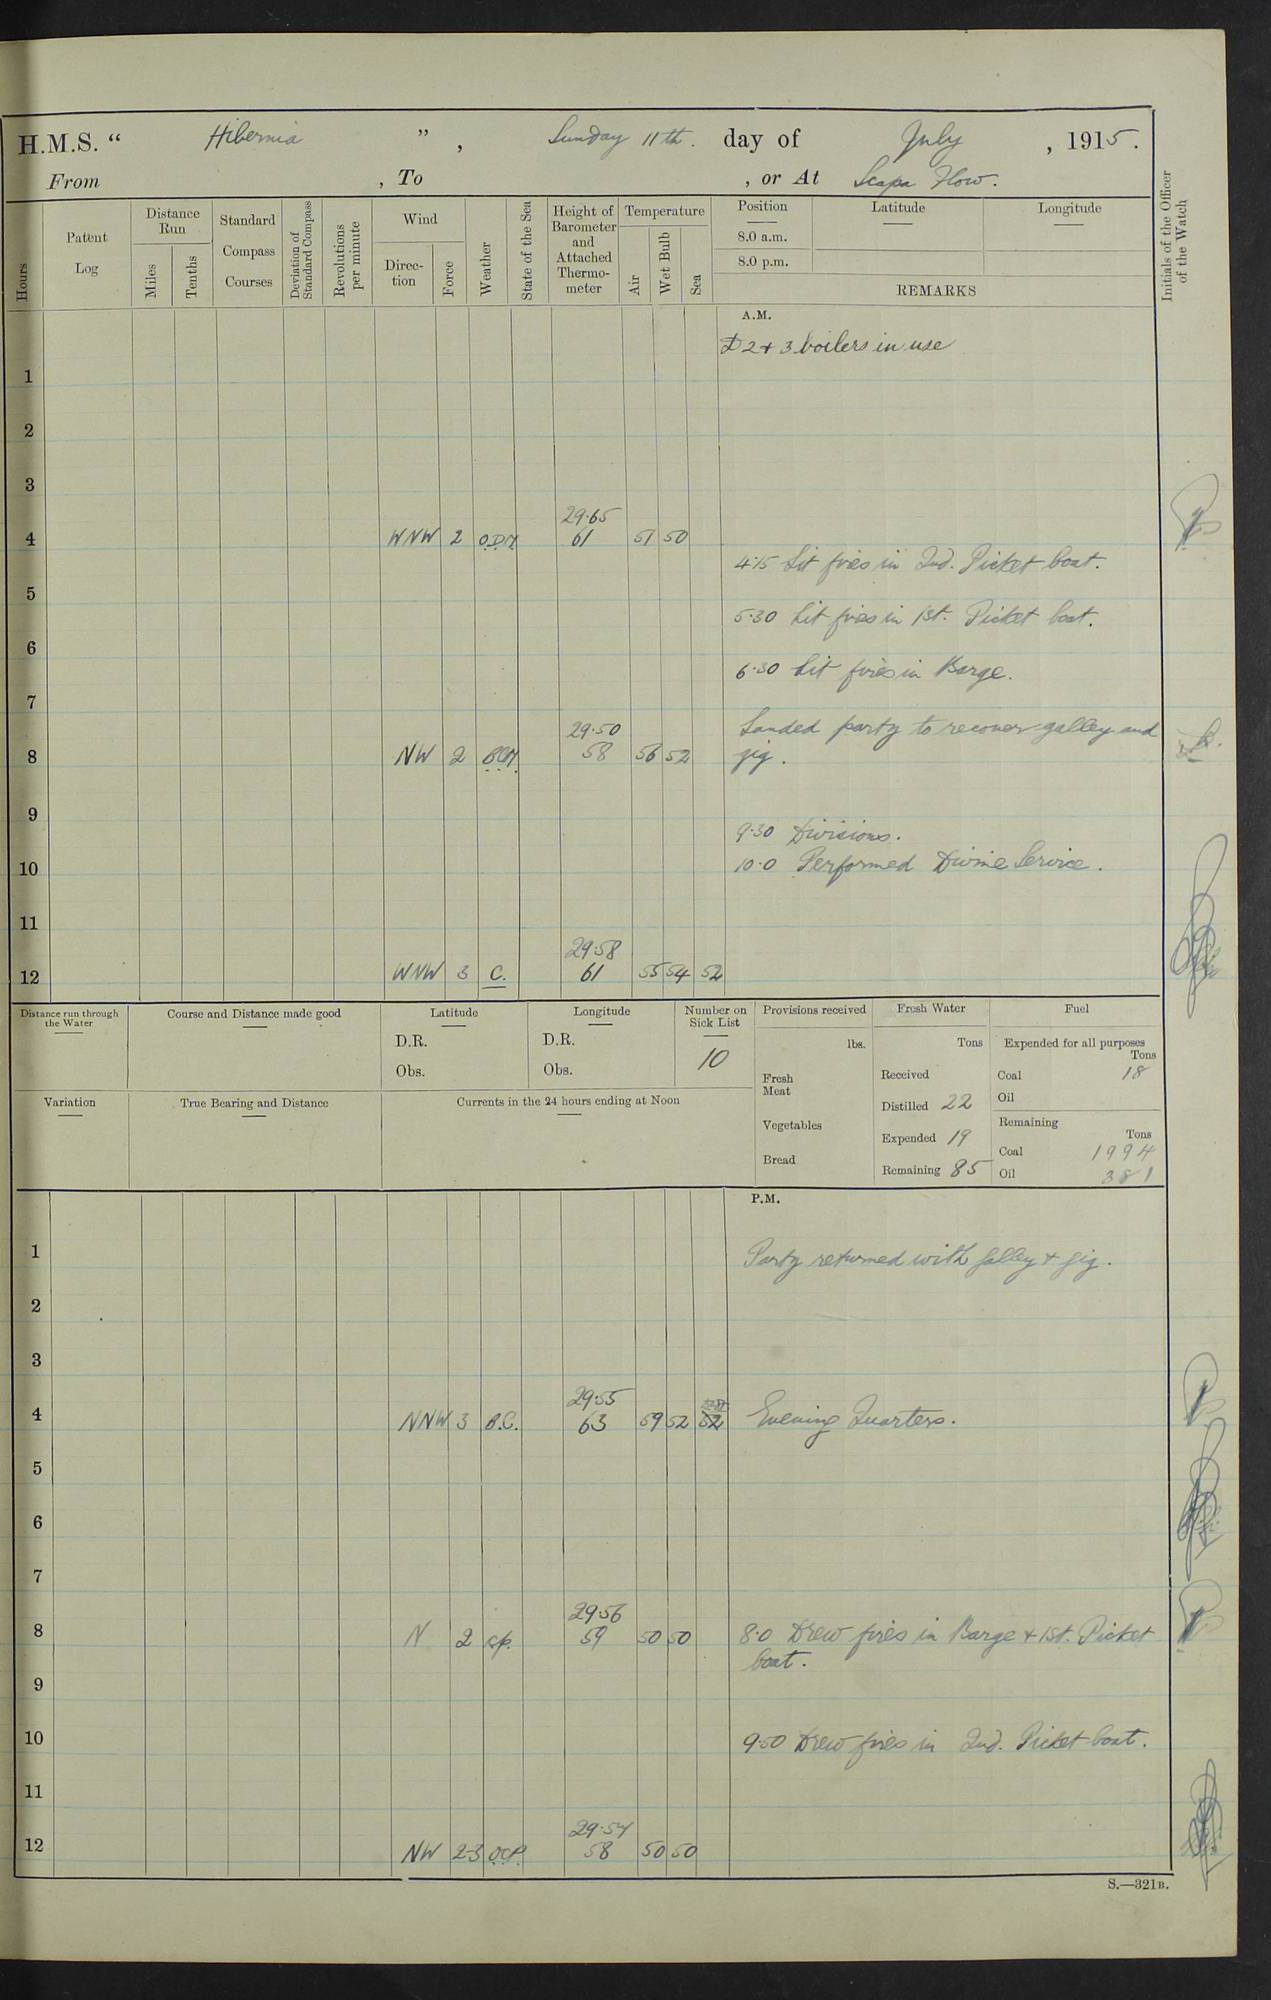 H.M.S. “ Hibernia ” , Sunday 11th. day of July , 1915.
From , To , or At Scapa Flow.
Hours
Patent Log
Distance Run
Miles
Tenths
Standard Compass Courses
Deviation of Standard Compass
Revolutions per minute
Wind
Direc-tion
Force
Weather
State of the Sea
Height of Barometer and Attached Thermo-meter
Temperature
Air
Wet Bulb
Sea
Position
8.0 a.m.
8.0 p.m.
Latitude
Longitude
REMARKS
Initials of the Officer of the Watch
A.M.
2 + 3 boilers in use
1
2
3
29.65
4 WNW 2 61 51 50
4.15 Lit fires in 2nd. Picket boat.
5
5.30 Lit fires in 1st. Picket boat.
6
6.30 Lit fires in Barge.
7
29.50 Landed party to recover galley and
8 NW 2 BCM 58 56 52 gig.
9
9.30 Divisions.
10 10.0 Performed Divine Service.
11
29.58
12 WNW 3 C. 61 55 54 52
Distance run through the Water
Course and Distance made good
Latitude
D.R.
Obs.
Longitude
D.R.
Obs.
Number on Sick List
10
Provisions received
lbs.
Fresh Meat
Vegetables
Bread
Fresh Water
Tons
Received
Distilled 22
Expended 19
Remaining 85
Fuel
Expended for all purposes
Tons
Coal 18
Oil
Remaining
Tons
Coal 1994
Oil 381
Variation
True Bearing and Distance
Currents in the 24 hours ending at Noon
P.M.
1 Party returned with galley + gig.
2
3
29.55
4 NNW 3 B.C. 63 59 52 52 Evening Quarters.
5
6
7
29.56
8 N 2 cp. 59 50 50 8.0 Drew fires in Barge + 1st. Picket
boat.
9
10 9.50 Drew fires in 2nd. Picket boat.
11
29.54
12 NW 2-3 OCP. 58 50 50
S.—321B.